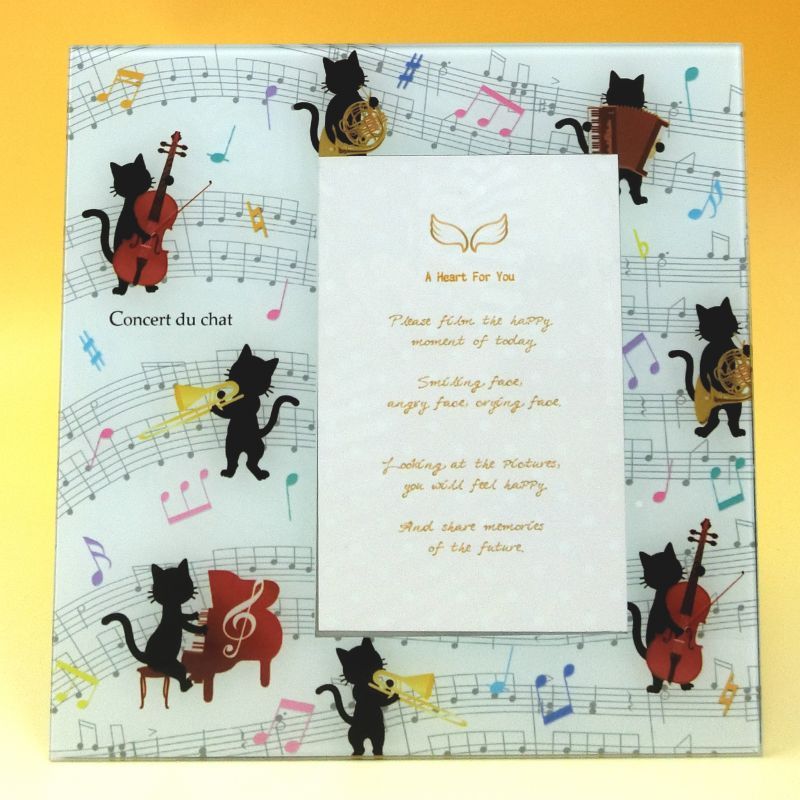 Concert du chat
A Heart For You
Please film the happy
moment of today.
Smiling face,
angry face, crying face.
Looking at the pictures,
you will feel happy.
And share memories
of the future.